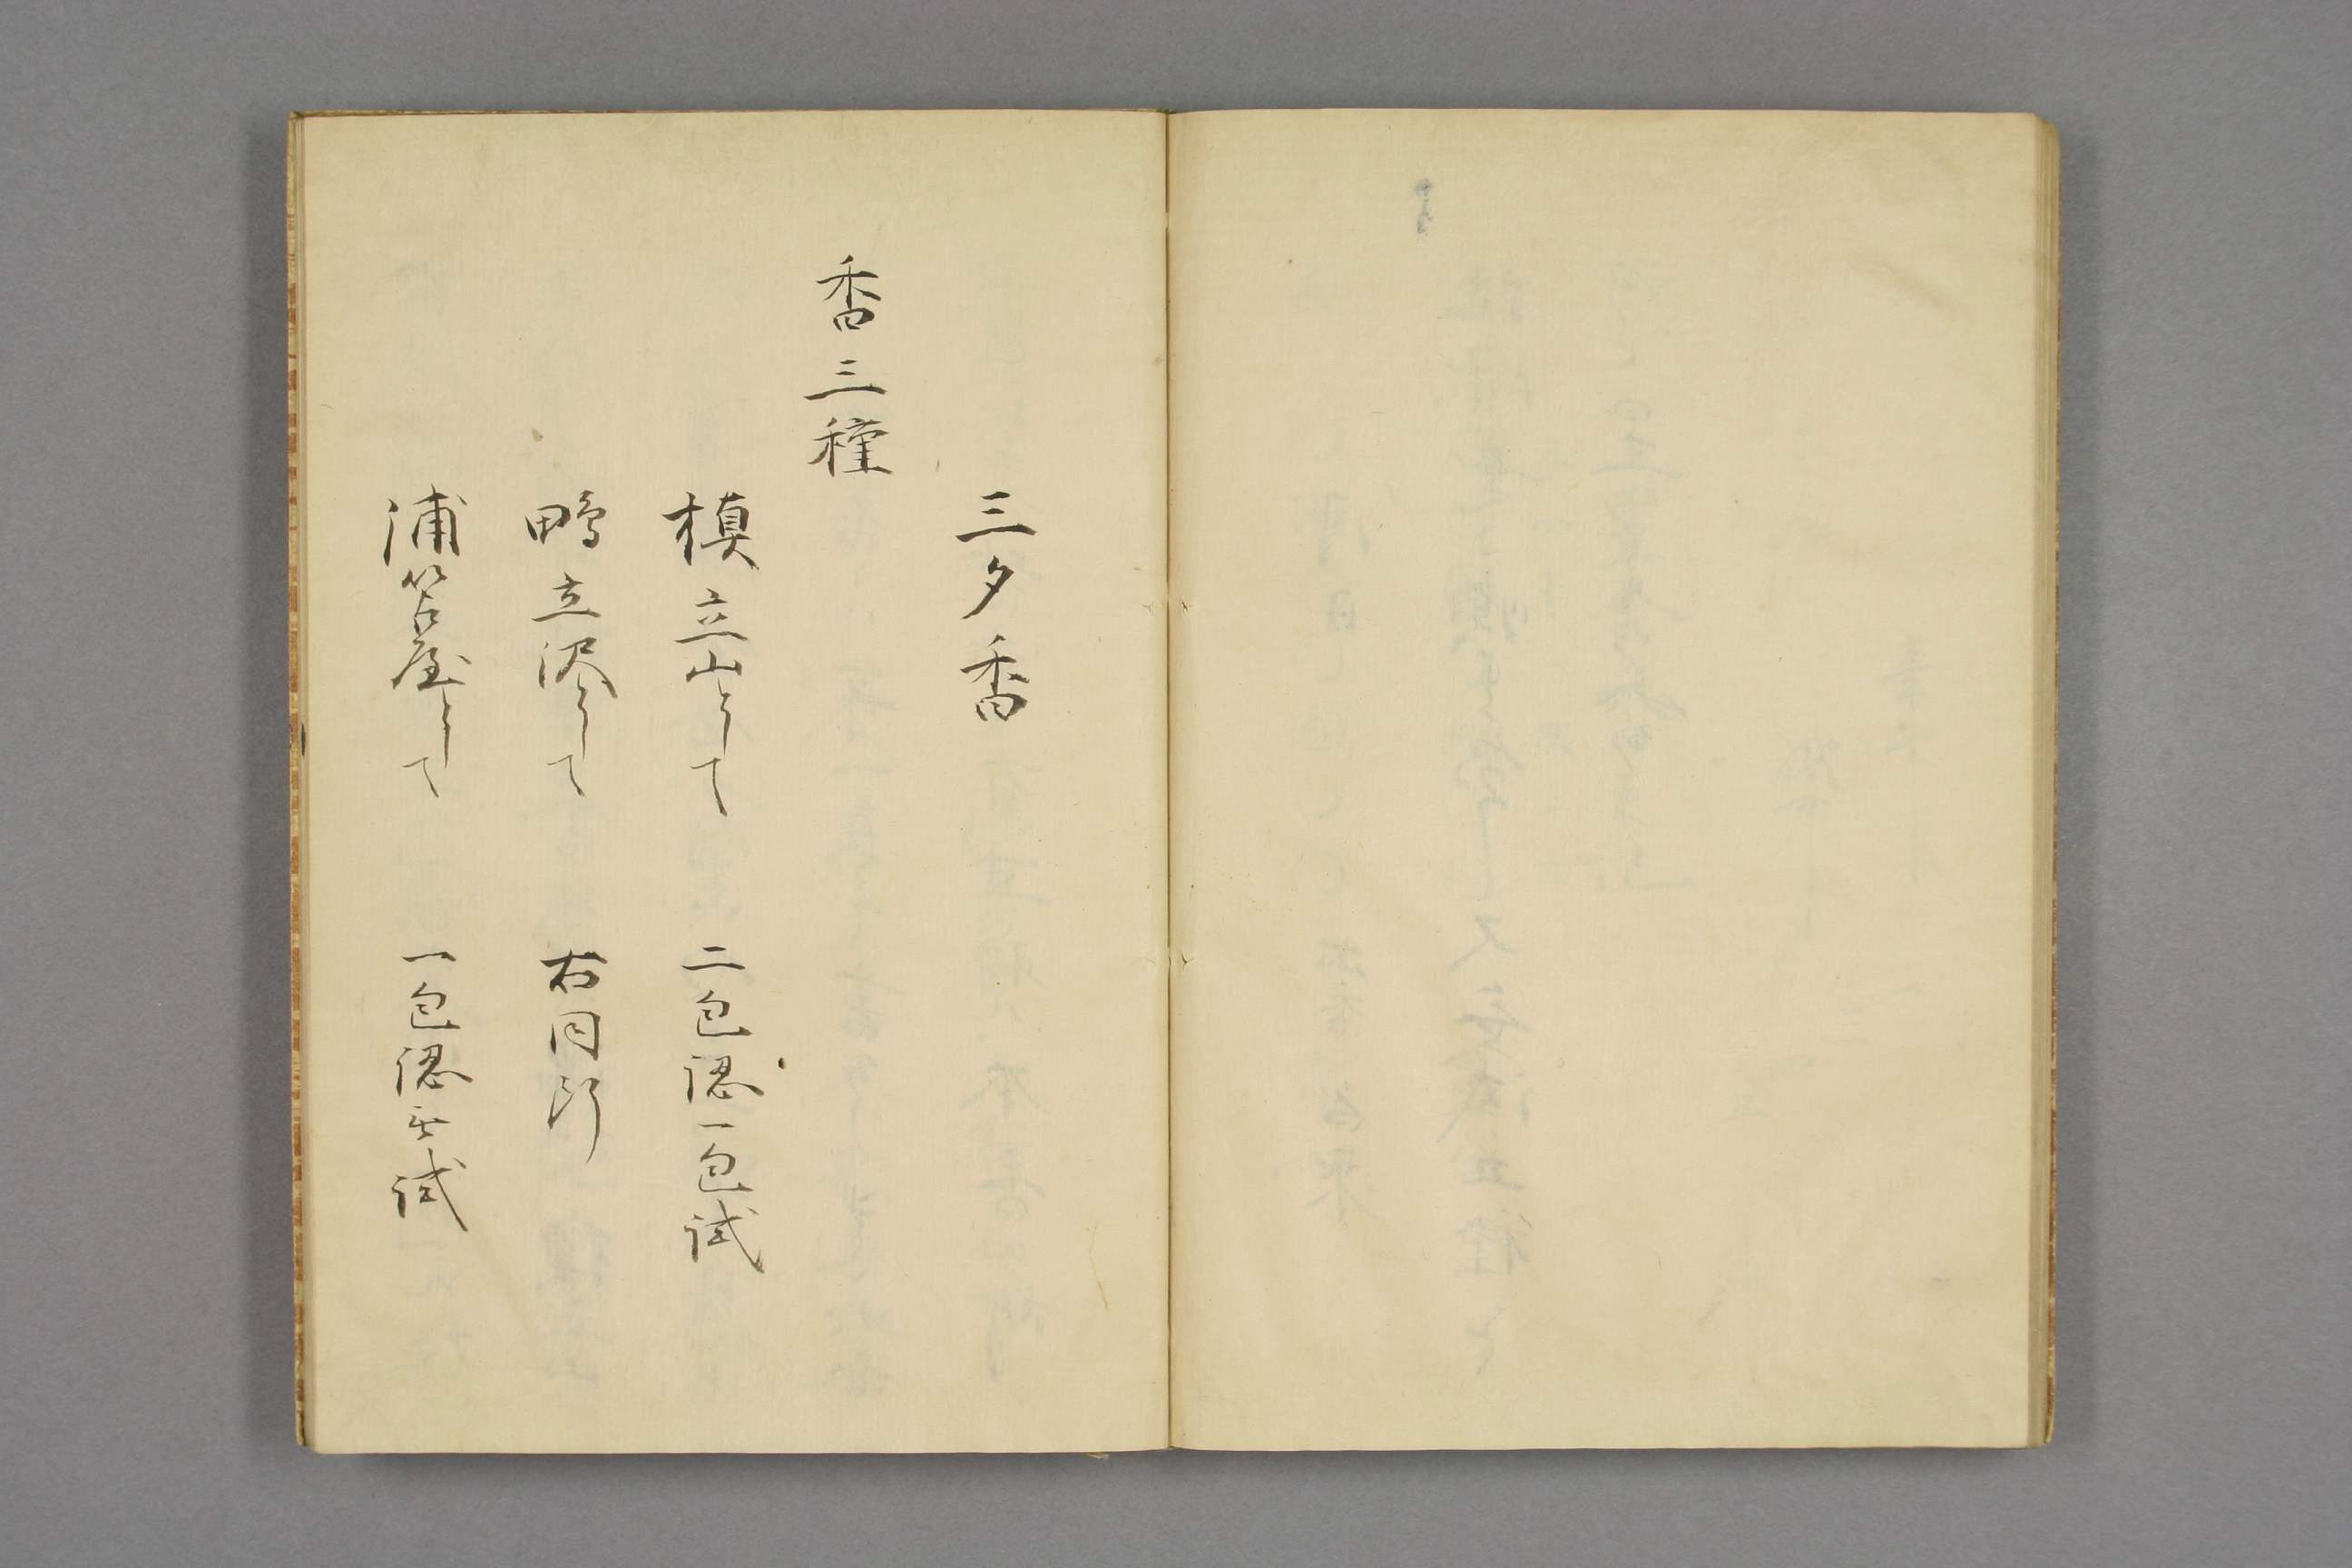 三夕香
香三種
槙立山として 二包認一包試
鴫立沢として 右同断
浦笘屋として 一包認無試